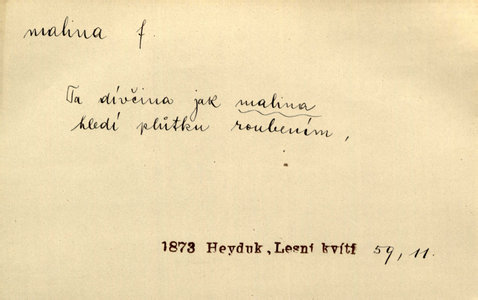 malina f.
Ta dívčina jak malina
hledí plůtku roubením,
1873 Heyduk, Lesní kvítí 59, 11.